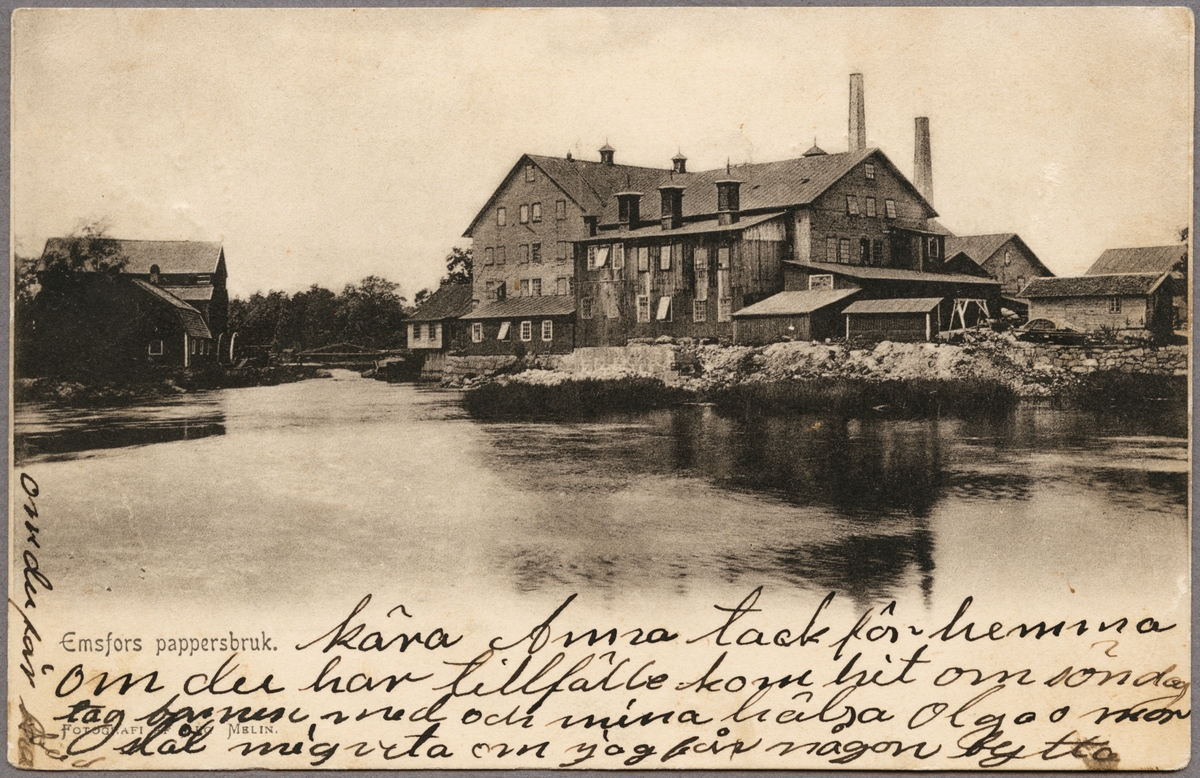 Emsfors pappersbruk.
kära Anna tack för hemma
om du har tillfälle kom hit om söndag
tag barnen med och mina hälsa Olga o mor
Fotografi Melin.
låt mig veta om jag får någon bytta
om du får